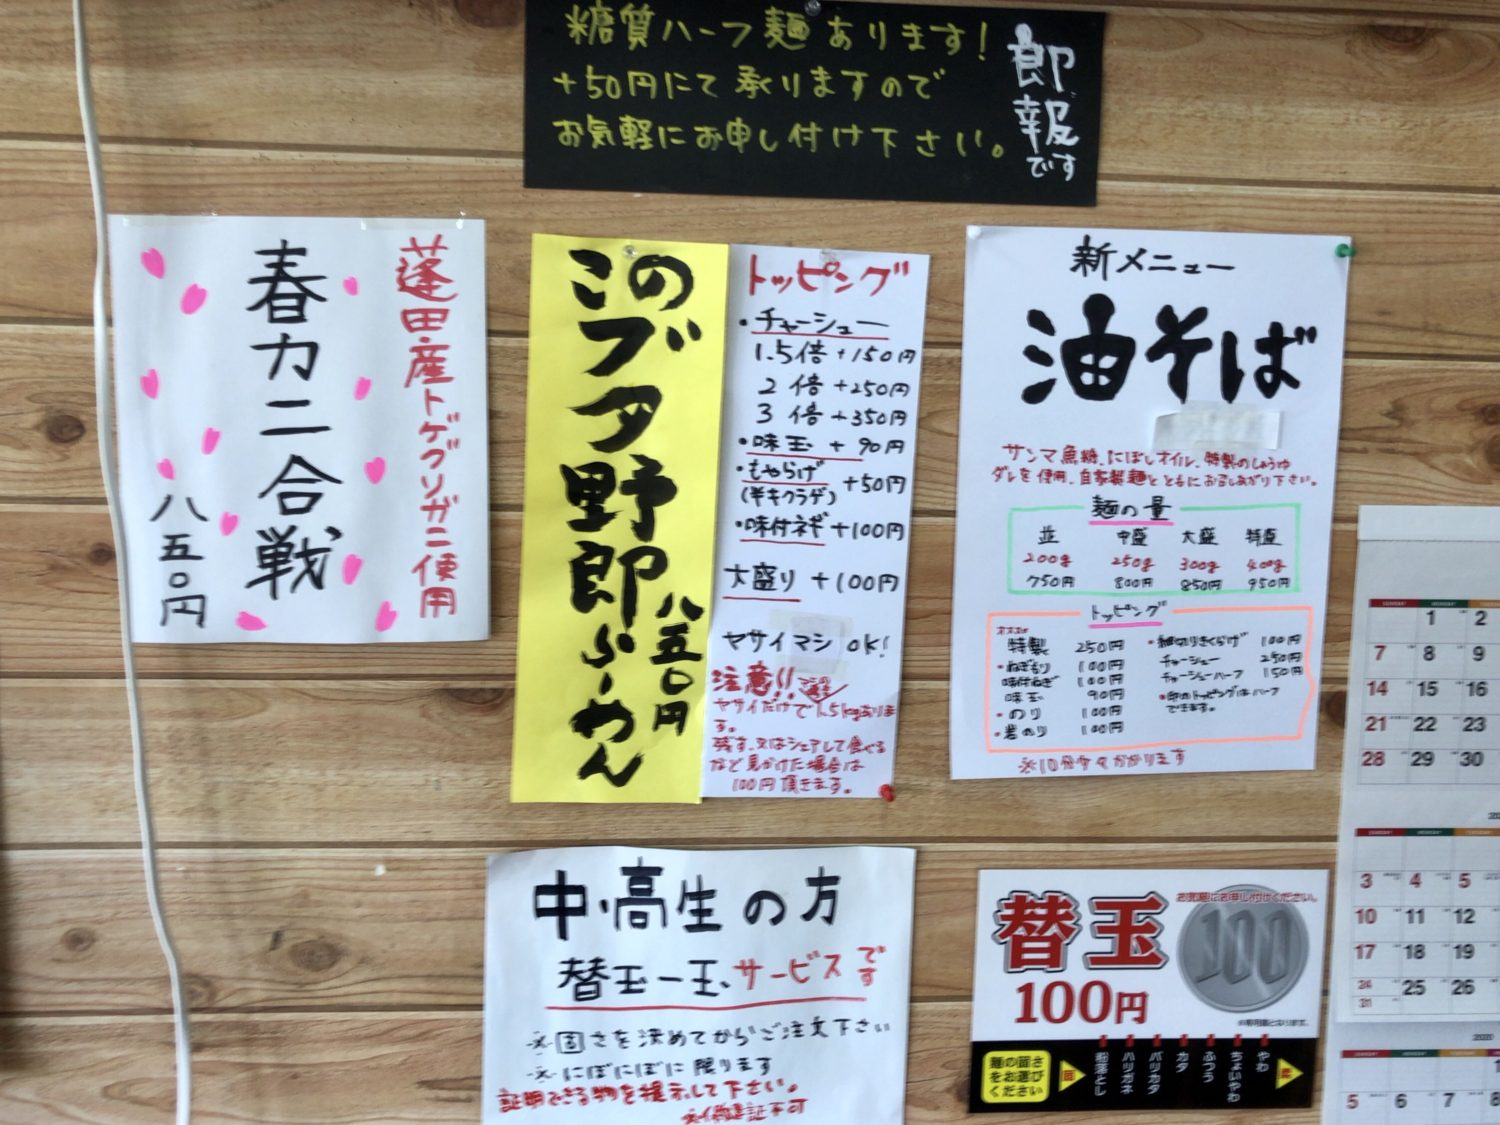 糖質ハーフ麺あります!
+50円にて承りますので
お気軽にお申し付け下さい。
郎報です
蓬田産トゲクリガニ使用
春カニ合戦
八五〇円
このブタ野郎らーめん
八五〇円
トッピング
・チャーシュー
1.5倍+150円
2倍+250円
3倍+350円
・味玉+90円
・もやらげ
(半キクラゲ)
+50円
・味付ネギ+100円
大盛り+100円
ヤサイマシOK!
注意!!
ヤサイだけで1.5kgありま
す。
残す、又はシェアして食べる
など見かけた場合は
100円頂きます。
新メニュー
油そば
サンマ魚粉、にぼしオイル、特製のしょうゆ
ダレを使用、自家製麺とともにお召しあがり下さい。
麺の量
並 中盛 大盛 特盛
200g 250g 300g 400g
750円 800円 850円 950円
トッピング
オススメ
特製 250円
・ねぎもり 100円
味付ねぎ 100円
味玉 90円
・のり 100円
・岩のり 100円
・細切りきくらげ 100円
チャーシュー 250円
チャーシューハーフ 150円
・印のトッピングはハーフ
できます。
※10分少々かかります
中・高生の方
替玉一玉サービスです
※固さを決めてからご注文下さい
※にぼにぼに限ります
証明できる物を提示して下さい。
お気軽にお申し付けください。
替玉
100円
100
麺の固さ
をお選び
ください
固
粉落とし
ハリガネ
バリカタ
カタ
ふつう
ちょいやわ
やわ
柔
1 2
7 8 9
14 15 16
21 22 23
28 29 30
3 4 5
10 11 12
17 18 19
24 25 26
31
2020
5 6 7 8